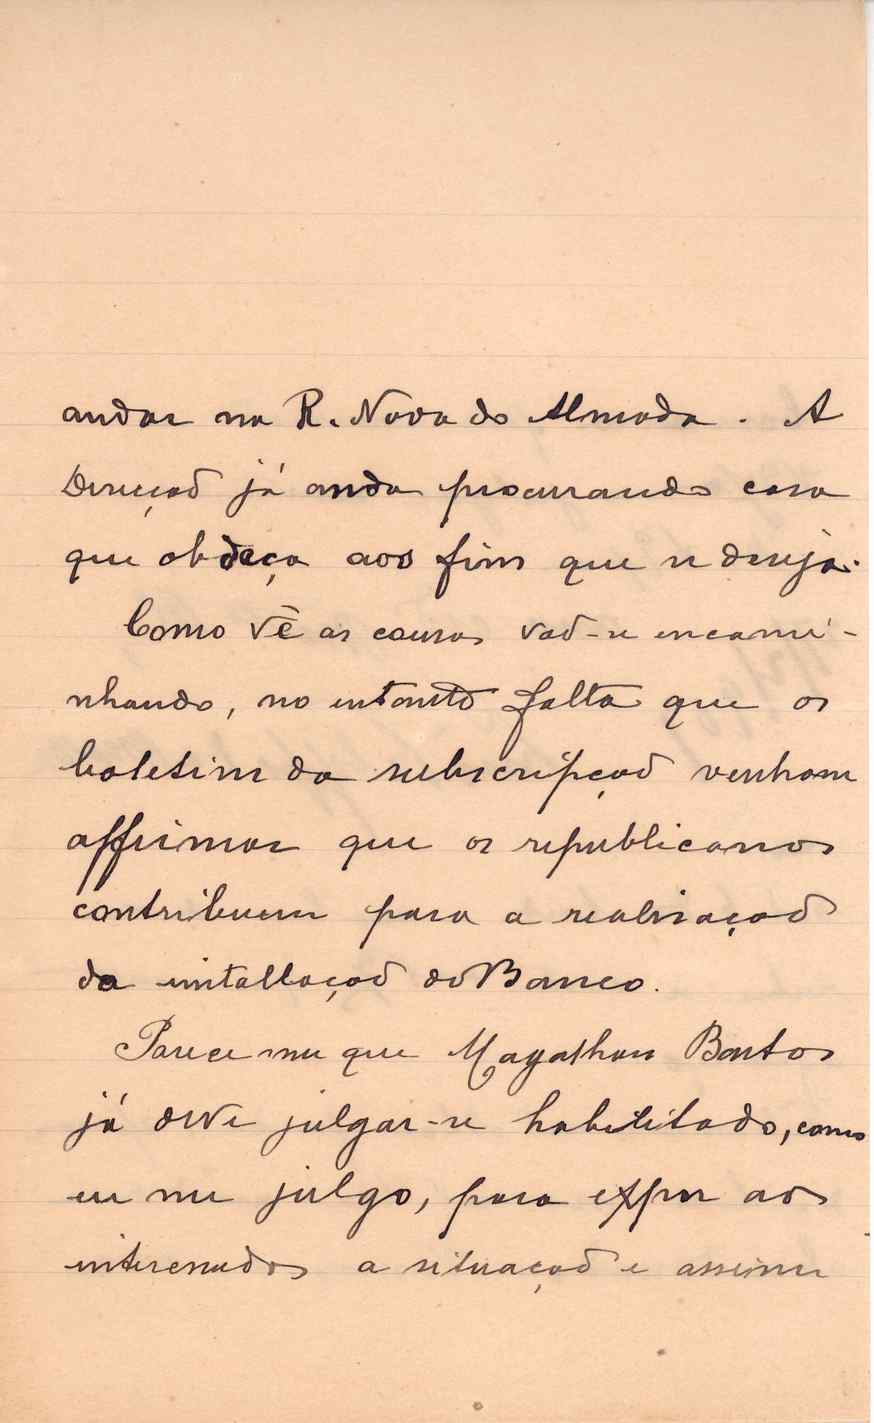 andar na R. Nova do Almada. A
Direcção já anda procurando casa
que obdeça aos fins que se deseja.
Como vê as cousas vão-se encami-
nhando, no entanto falta que os
boletins da subscripção venham
affirmar que os republicanos
contribuem para a realisação
da installação do Banco.
Parece me que Magalhães Bastos
já deve julgar-se habilitado, como
eu me julgo, para expor aos
interessados a situação e assim